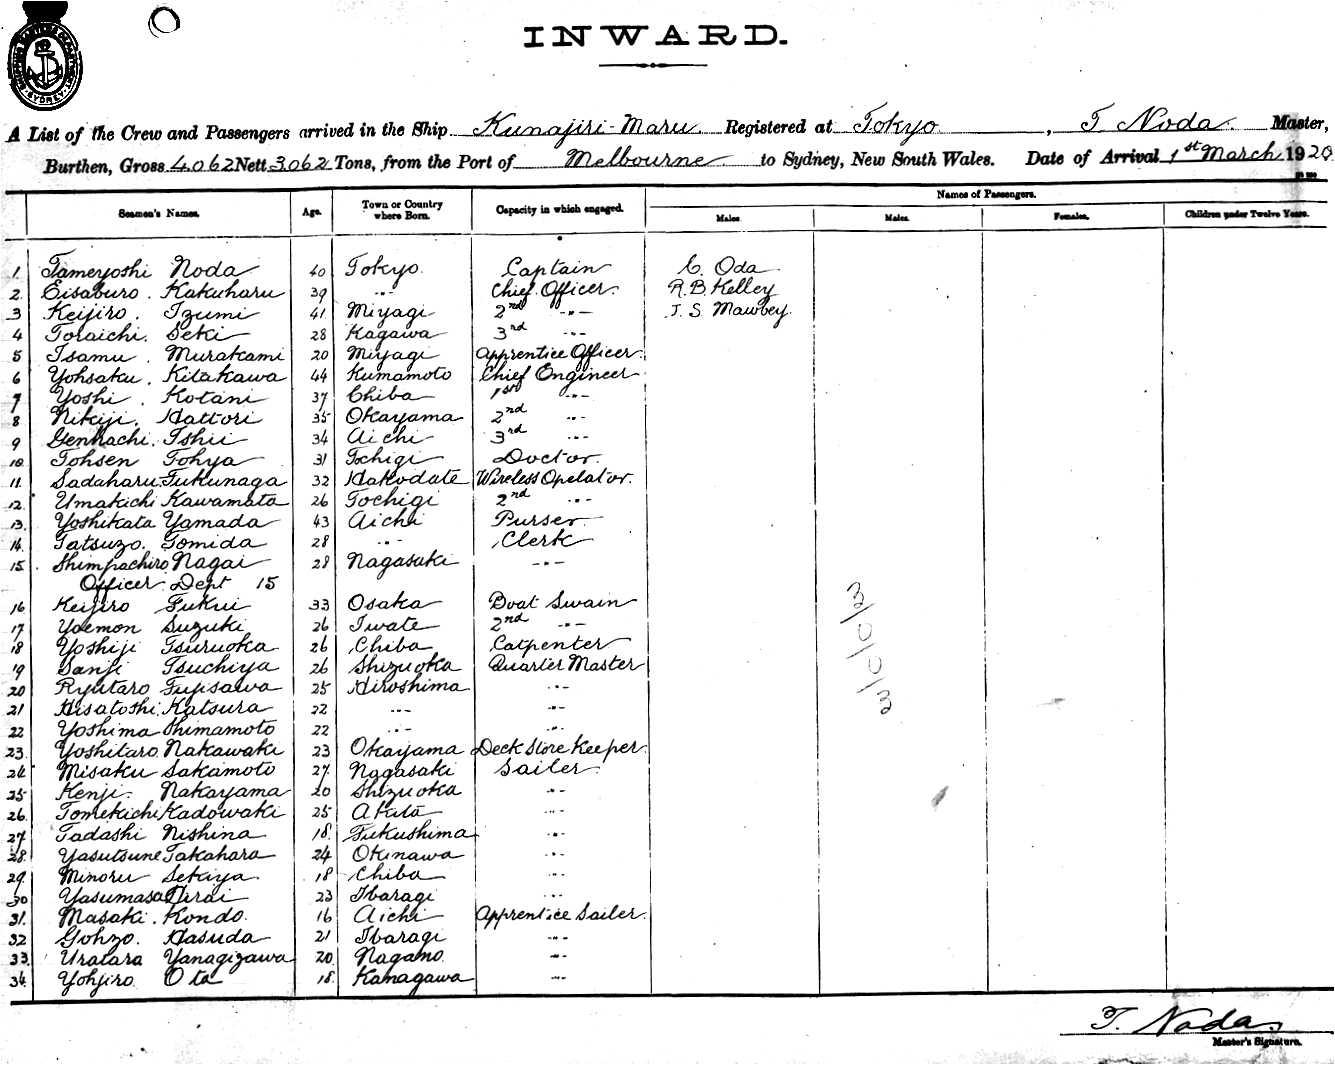 INWARD.
A List of the Crew and Passengers arrived in the Ship Kunajiri-Maru Registered at Tokyo, T Noda Master,
Burthen, Gross 4062 Nett 3062 Tons, from the Port of Melbourne to Sydney, New South Wales. Date of Arrival 1st March 1920
Names of Passengers.
Seamen's Names. Age. Town or Country where Born. Capacity in which engaged. Males Males. Females. Children under Twelve Years.
1. Tameyoshi Noda 40 Tokyo. Captain C. Oda
2. Eisaburo. Kakuharu 39 -"- Chief Officer. R.B Kelley
3 Keijiro. Izumi 41 Miyagi 2nd -"- J. S. Mawbey.
4 Toraichi. Seki 28 Kagawa 3rd -"-
5 Isamu. Murakami 20 Miyagi Apprentice Officer.
6 Yohsaku. Kitakawa 44 Kumamoto Chief Engineer
7 Yoshi. Kotani 37 Chiba 1st -"-
8 Nikiji. Hattori 35 Okayama 2nd -"-
9 Genhachi. Ishii 34 Aichi 3rd -"-
10 Tohsen Tohya 31 Tochigi Doctor.
11. Sadaharu Fukunaga 32 Hakodate Wireless Opelator.
12. Umakichi Kawamata 26 Tochigi 2nd -"-
13. Yoshikata Yamada 43 Aichi Purser
14. Tatsuzo. Tomida 28 -"- Clerk
15. Shimpachiro Nagai 28 Nagasaki -"-
Officer Dept 15
16 Keijiro Fukui 33 Osaka Boat Swain
17 Yoemon Suzuki 26 Iwate 2nd -"-
18 Yoshiji Tsuruoka 26 Chiba Catpenter
19 Sanji Tsuchiya 26 Shizuoka Quarter Master
20 Ryutaro Fujisawa 25 Hiroshima -"-
21 Hisatoshi Katsura 22 -"- -"-
22 Yoshima Shimamoto 22 -"- -"-
23. Yoshitaro Nakawaki 23 Okayama Deck Store Keeper.
24. Misaku Sakamoto 27 Nagasaki Sailer
25 Kenji. Nakayama 20 Shizuoka -"-
26. Tomekichi Kadowaki 25 Akita -"-
27. Tadashi Nishina 18. Fukushima -"-
28. Yasutsune Takahara 24 Okinawa -"-
29. Minoru Sekiya. 18 Chiba -"-
30 Yasumasa Hirai 23 Ibaragi -"-
31. Masaki. Kondo. 16 Aichi Apprentice Sailer.
32 Gohzo. Hasuda 21 Ibaragi -"-
33. Uratara Yanagizawa 20. Nagano -"-
34. Yohjiro Ota 18. Kanagawa -"-
3/0/0/3
T. Noda
Master's Signature.